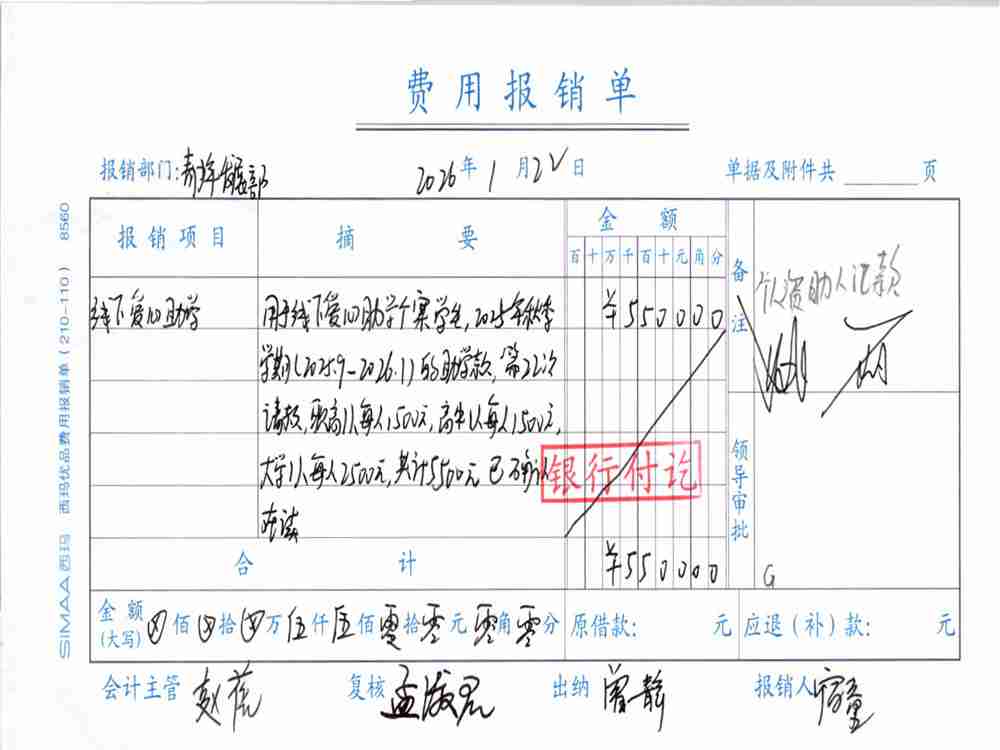 费用报销单
报销部门: 发展部 2026年1月22日 单据及附件共 页
报销项目 摘要 金额 备注
百十万千百十元角分
线下爱心助学 用于线下爱心助学个案学生,2025年秋季 ¥550000
学期(2025.9-2026.1)的助学款,第22次
请款,职高1人每人1500元,高中1人每人1500元,
大学1人每人2500元,共计5500元 已确认
在读
个人资助人汇款
银行付讫
领导审批
合计 ¥550000
金额(大写) 佰 拾 万伍仟伍佰零拾零元零角零分 原借款: 元 应退(补)款: 元
会计主管 赵 复核 孟 出纳 曾静 报销人 童
SIMAA西玛 西玛优品费用报销单(210-110) 8560